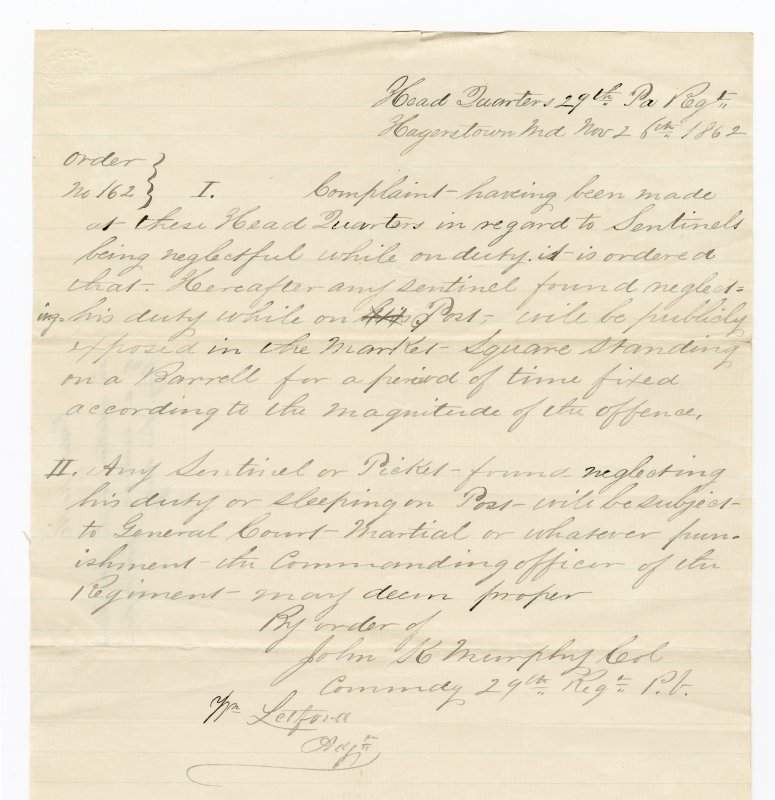 Head Quarters 29th Pa Regt
Hagerstown Md Nov 26th 1862
order
No 162 } I. Complaint having been made
at these Head Quarters in regard to Sentinels
being neglectful while on duty. it is ordered
that. Hereafter any sentinel found neglect=
ing= his duty while on his Post, will be publicly
exposed in the Market Square standing
on a Barrell for a period of time fixed
according to the magnitude of the offence.
II. Any Sentinel or Picket found neglecting
his duty or sleeping on Post will be subject
to General Court Martial or whatever pun-
ishment the Commanding officer of the
Regiment may deem proper
By order of
John K Murphy Col
Commdg 29th Regt P.V.
Wm Letford
Adjt